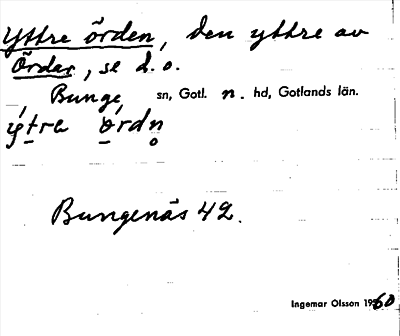 Yttre örden, den yttre av
Ördar, se d.o.
Bunge sn, Gotl. n. hd, Gotlands län.
ýtra ö́rdn̥
Bungenäs 42.
Ingemar Olsson 1960